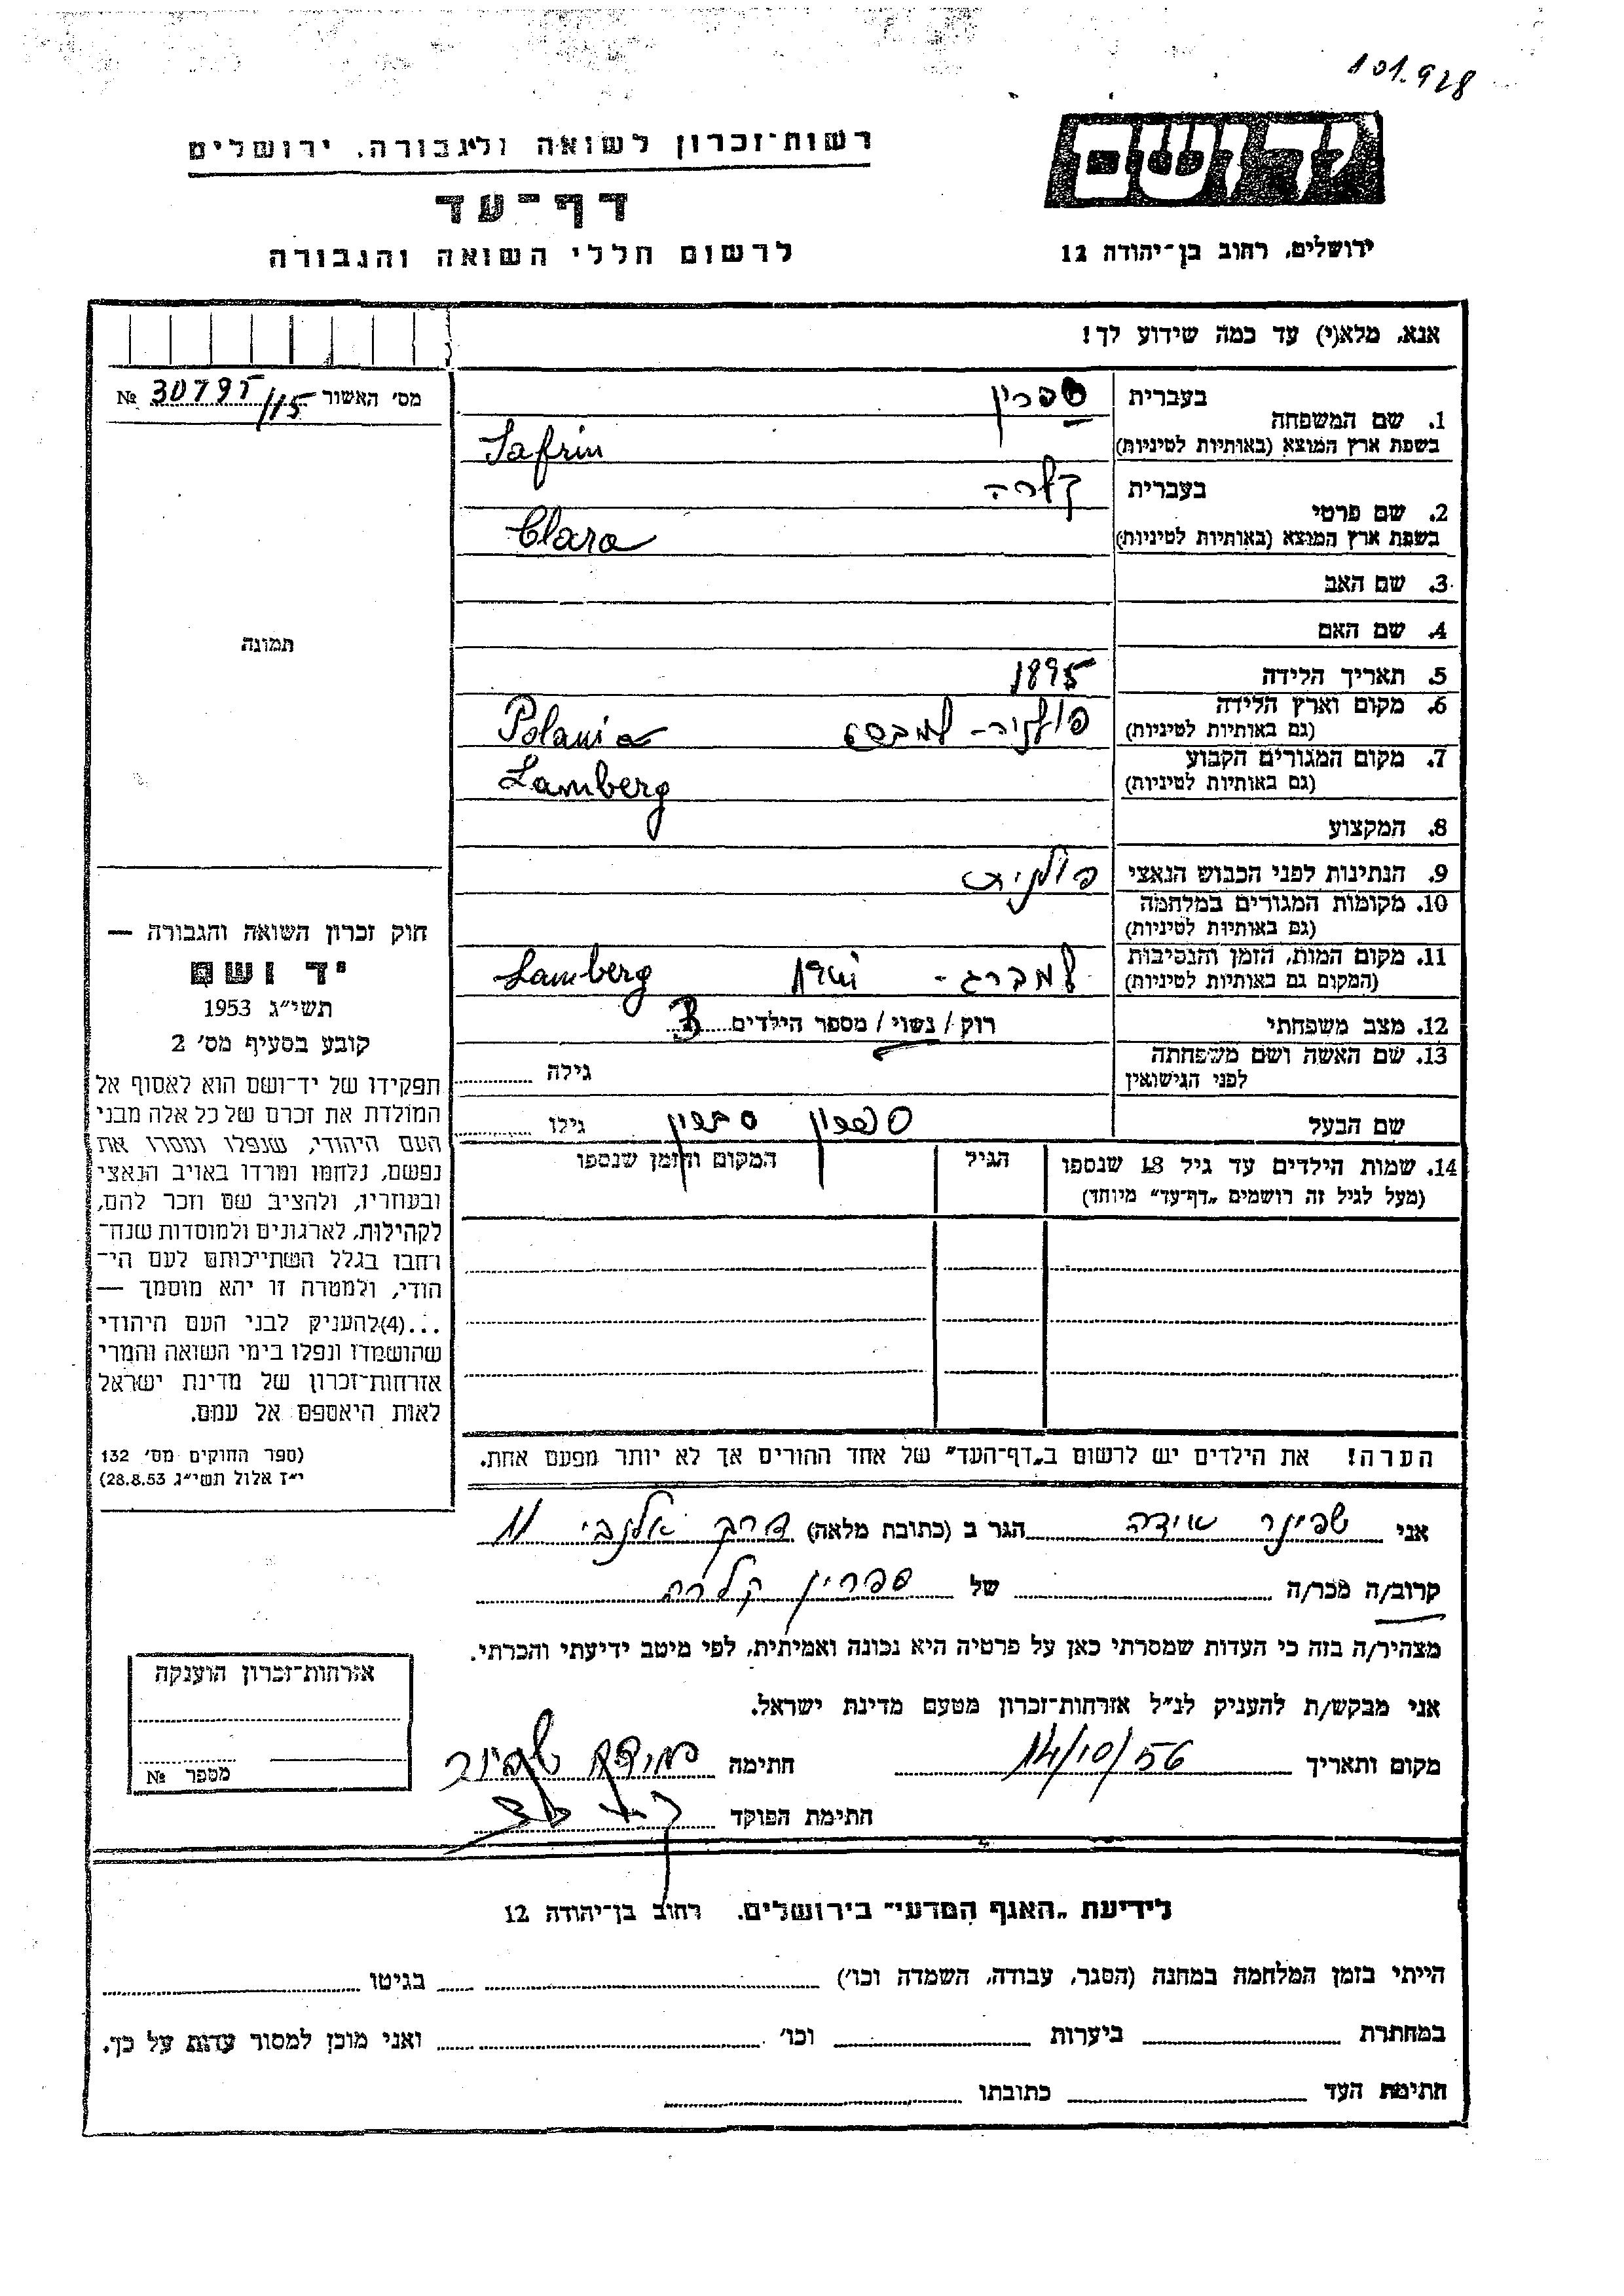 101.928
רשות־זכרון לשואה ולגבורה, ירושלים
יד ושם
דף־עד
לרשום חללי השואה והגבורה
ירושלים, רחוב בן־יהודה 12
אנא, מלא(י) עד כמה שידוע לך!
מס' האשור 30795/15 №
1. שם המשפחה בעברית ספרין
בשפת ארץ המוצא (באותיות לטיניות) Safrin
2. שם פרטי בעברית קלרה
בשפת ארץ המוצא (באותיות לטיניות) Clara
3. שם האב
4. שם האם
תמונה
5. תאריך הלידה 1895
6. מקום וארץ הלידה (גם באותיות לטיניות) פולניה - Polania
7. מקום המגורים הקבוע (גם באותיות לטיניות) Lamberg
8. המקצוע
9. הנתינות לפני הכבוש הנאצי פולנית
10. מקומות המגורים במלחמה (גם באותיות לטיניות)
11. מקום המות, הזמן והנסיבות (המקום גם באותיות לטיניות) למברג - Lamberg
12. מצב משפחתי רוק / נשוי / מספר הילדים 3
13. שם האשה ושם משפחתה לפני הנישואין גילה
שם הבעל ספרין גילו
14. שמות הילדים עד גיל 18 שנספו
(מעל לגיל זה רושמים „דף־עד" מיוחד)
הגיל
המקום והזמן שנספו
הערה! את הילדים יש לרשום ב„דף־העד" של אחד ההורים אך לא יותר מפעם אחת.
חוק זכרון השואה והגבורה —
יד ושם
תשי"ג 1953
קובע בסעיף מס' 2
תפקידו של יד־ושם הוא לאסוף אל
המולדת את זכרם של כל אלה מבני
העם היהודי, שנפלו ומסרו את
נפשם, נלחמו ומרדו באויב הנאצי
ובעוזריו, ולהציב שם וזכר להם,
לקהילות, לארגונים ולמוסדות שנח־
רבו בגלל השתייכותם לעם הי־
הודי, ולמטרה זו יהא מוסמך —
...(4)להעניק לבני העם היהודי
שהושמדו ונפלו בימי השואה והמרי
אזרחות־זכרון של מדינת ישראל
לאות היאספם אל עמם.
(ספר החוקים מס' 132
י"ז אלול תשי"ג 28.8.53)
אני שפינר אידה הגר ב (כתובת מלאה) דרך אלנבי 11
קרוב/ה מכר/ה של ספרין קלרה
מצהיר/ה בזה כי העדות שמסרתי כאן על פרטיה היא נכונה ואמיתית, לפי מיטב ידיעתי והכרתי.
אני מבקש/ת להעניק לנ"ל אזרחות־זכרון מטעם מדינת ישראל.
מקום ותאריך 14/10/56 חתימה שפינר
חתימת הפוקד
אזרחות־זכרון הוענקה
מספר №
לידיעת „האגף המדעי" בירושלים. רחוב בן־יהודה 12
הייתי בזמן המלחמה במחנה (הסגר, עבודה, השמדה וכו') בגיטו
במחתרת ביערות וכו' ואני מוכן למסור עדות על כך.
חתימת העד כתובתו